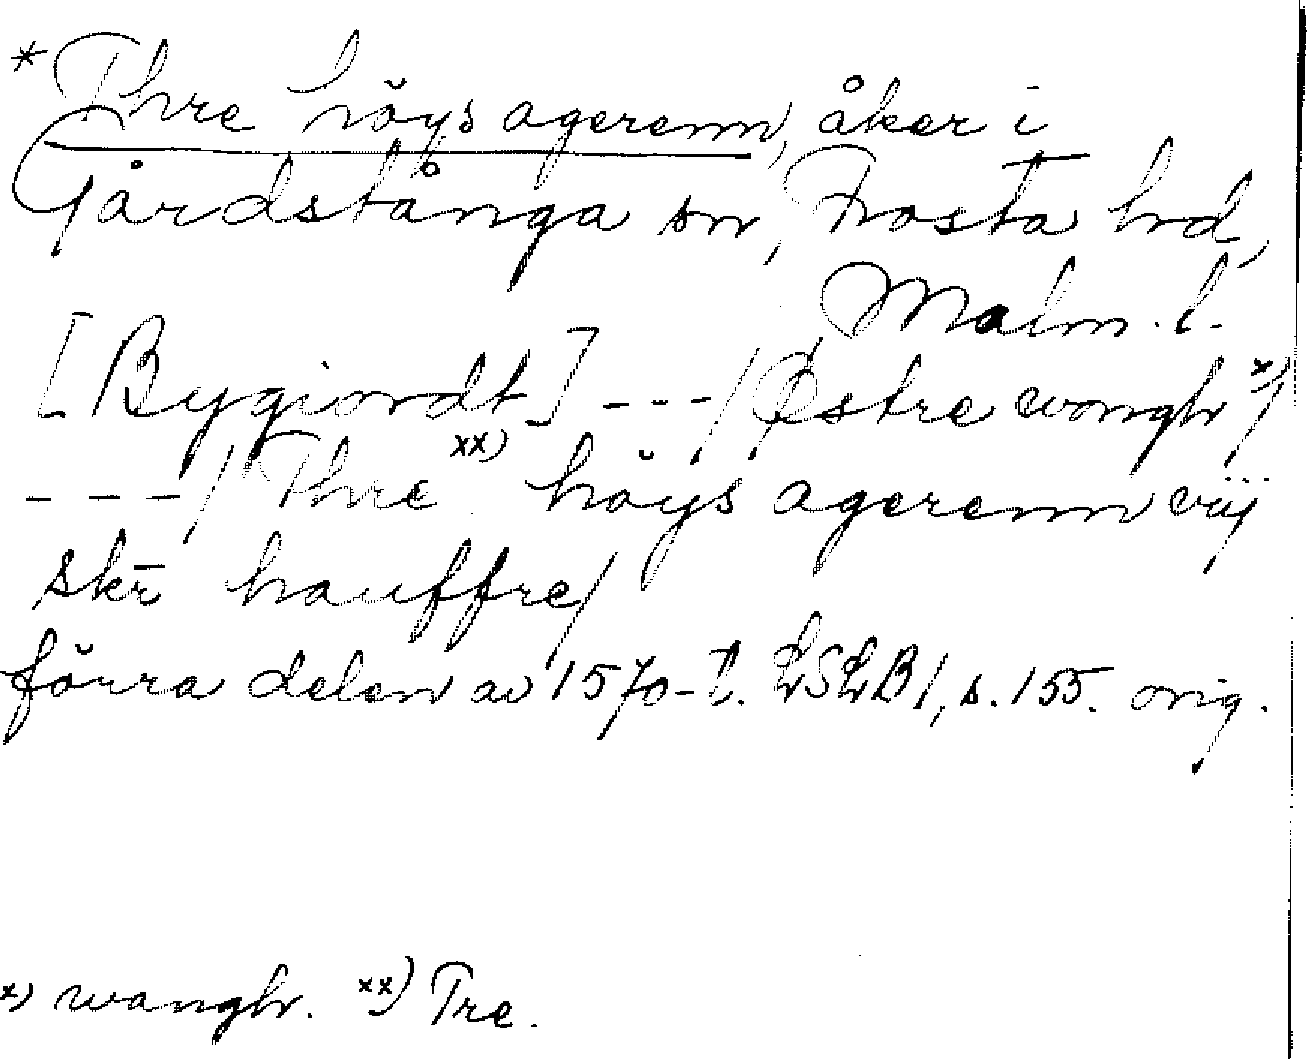 * Thre höys agerenn, åker i
Gårdstånga sn, Frosta hd,
Malm. l.
[Bygiordt] ---/ Østre wongh x)/
---/ Thre xx) höys agerenn viij
skr̄ hauffre/
förra delen av 1570-t. LSLB 1, s. 155. orig.
x) wangh. xx) Tre.